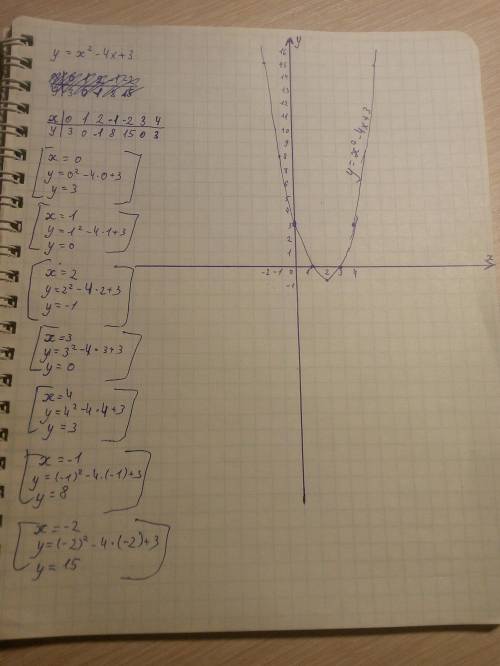 y = x² - 4x + 3
x 0 1 2 -1 -2 3 4
y 3 0 -1 8 15 0 3
x = 0
y = 0² - 4·0 + 3
y = 3
x = 1
y = 1² - 4·1 + 3
y = 0
x = 2
y = 2² - 4·2 + 3
y = -1
x = 3
y = 3² - 4·3 + 3
y = 0
x = 4
y = 4² - 4·4 + 3
y = 3
x = -1
y = (-1)² - 4·(-1) + 3
y = 8
x = -2
y = (-2)² - 4·(-2) + 3
y = 15
y
y = x² - 4x + 3
3
2
1
x
-2 -1 0 1 2 3 4
-1